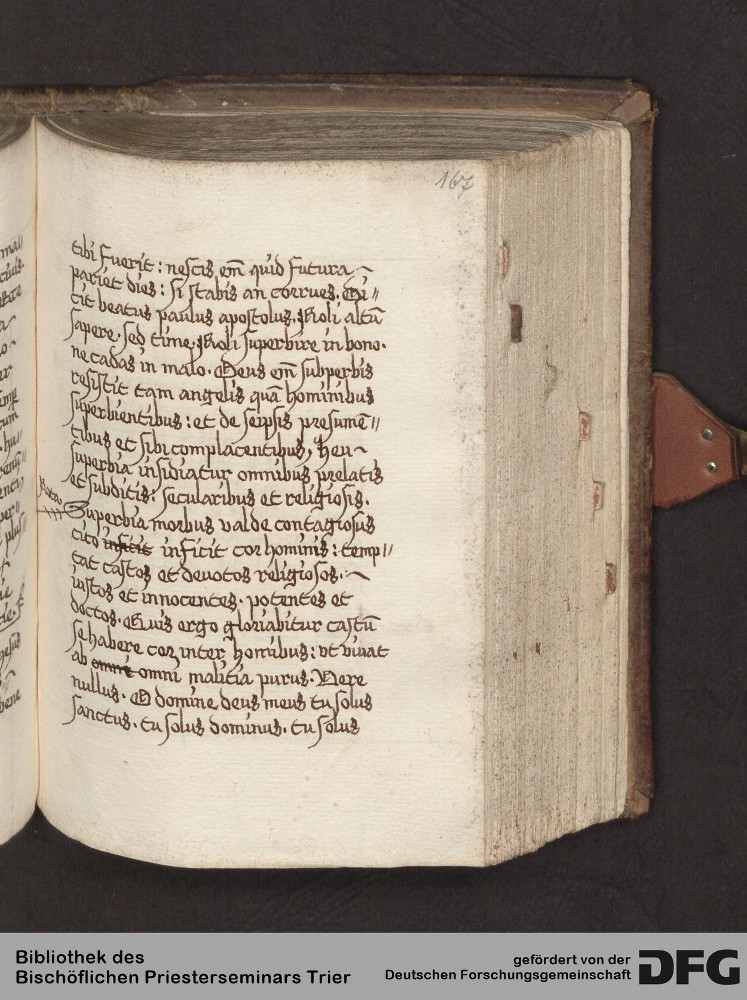 167
tibi fuerit: nescis em̄ quid futura
pariet dies: si stabis an corrues. Di〃
cit beatus paulus apostolus. Noli altū
sapere. sed time. Noli superbire in bono.
ne cadas in malo. Deus em̄ subperbis
resistit tam angelis quā hominibus
superbientibus: et de seipsis presumē〃
tibus et sibi complacentibus, heu
superbia insidiatur omnibus prelatis
et subditis: secularibus et religiosis.
Nota
Superbia morbus valde contagiosus
cito inficit inficit cor hominis: temp〃
tat castos et deuotos religiosos.
iustos et innocentes. potentes et
doctos. Quis ergo gloriabitur castū
se habere cor inter homībus: vt viuat
ab omni omni malitia purus. Vere
nullus. O domine deus meus tu solus
sanctus. tu solus dominus. tu solus
Bibliothek des
Bischöflichen Priesterseminars Trier
gefördert von der
Deutschen Forschungsgemeinschaft
DFG